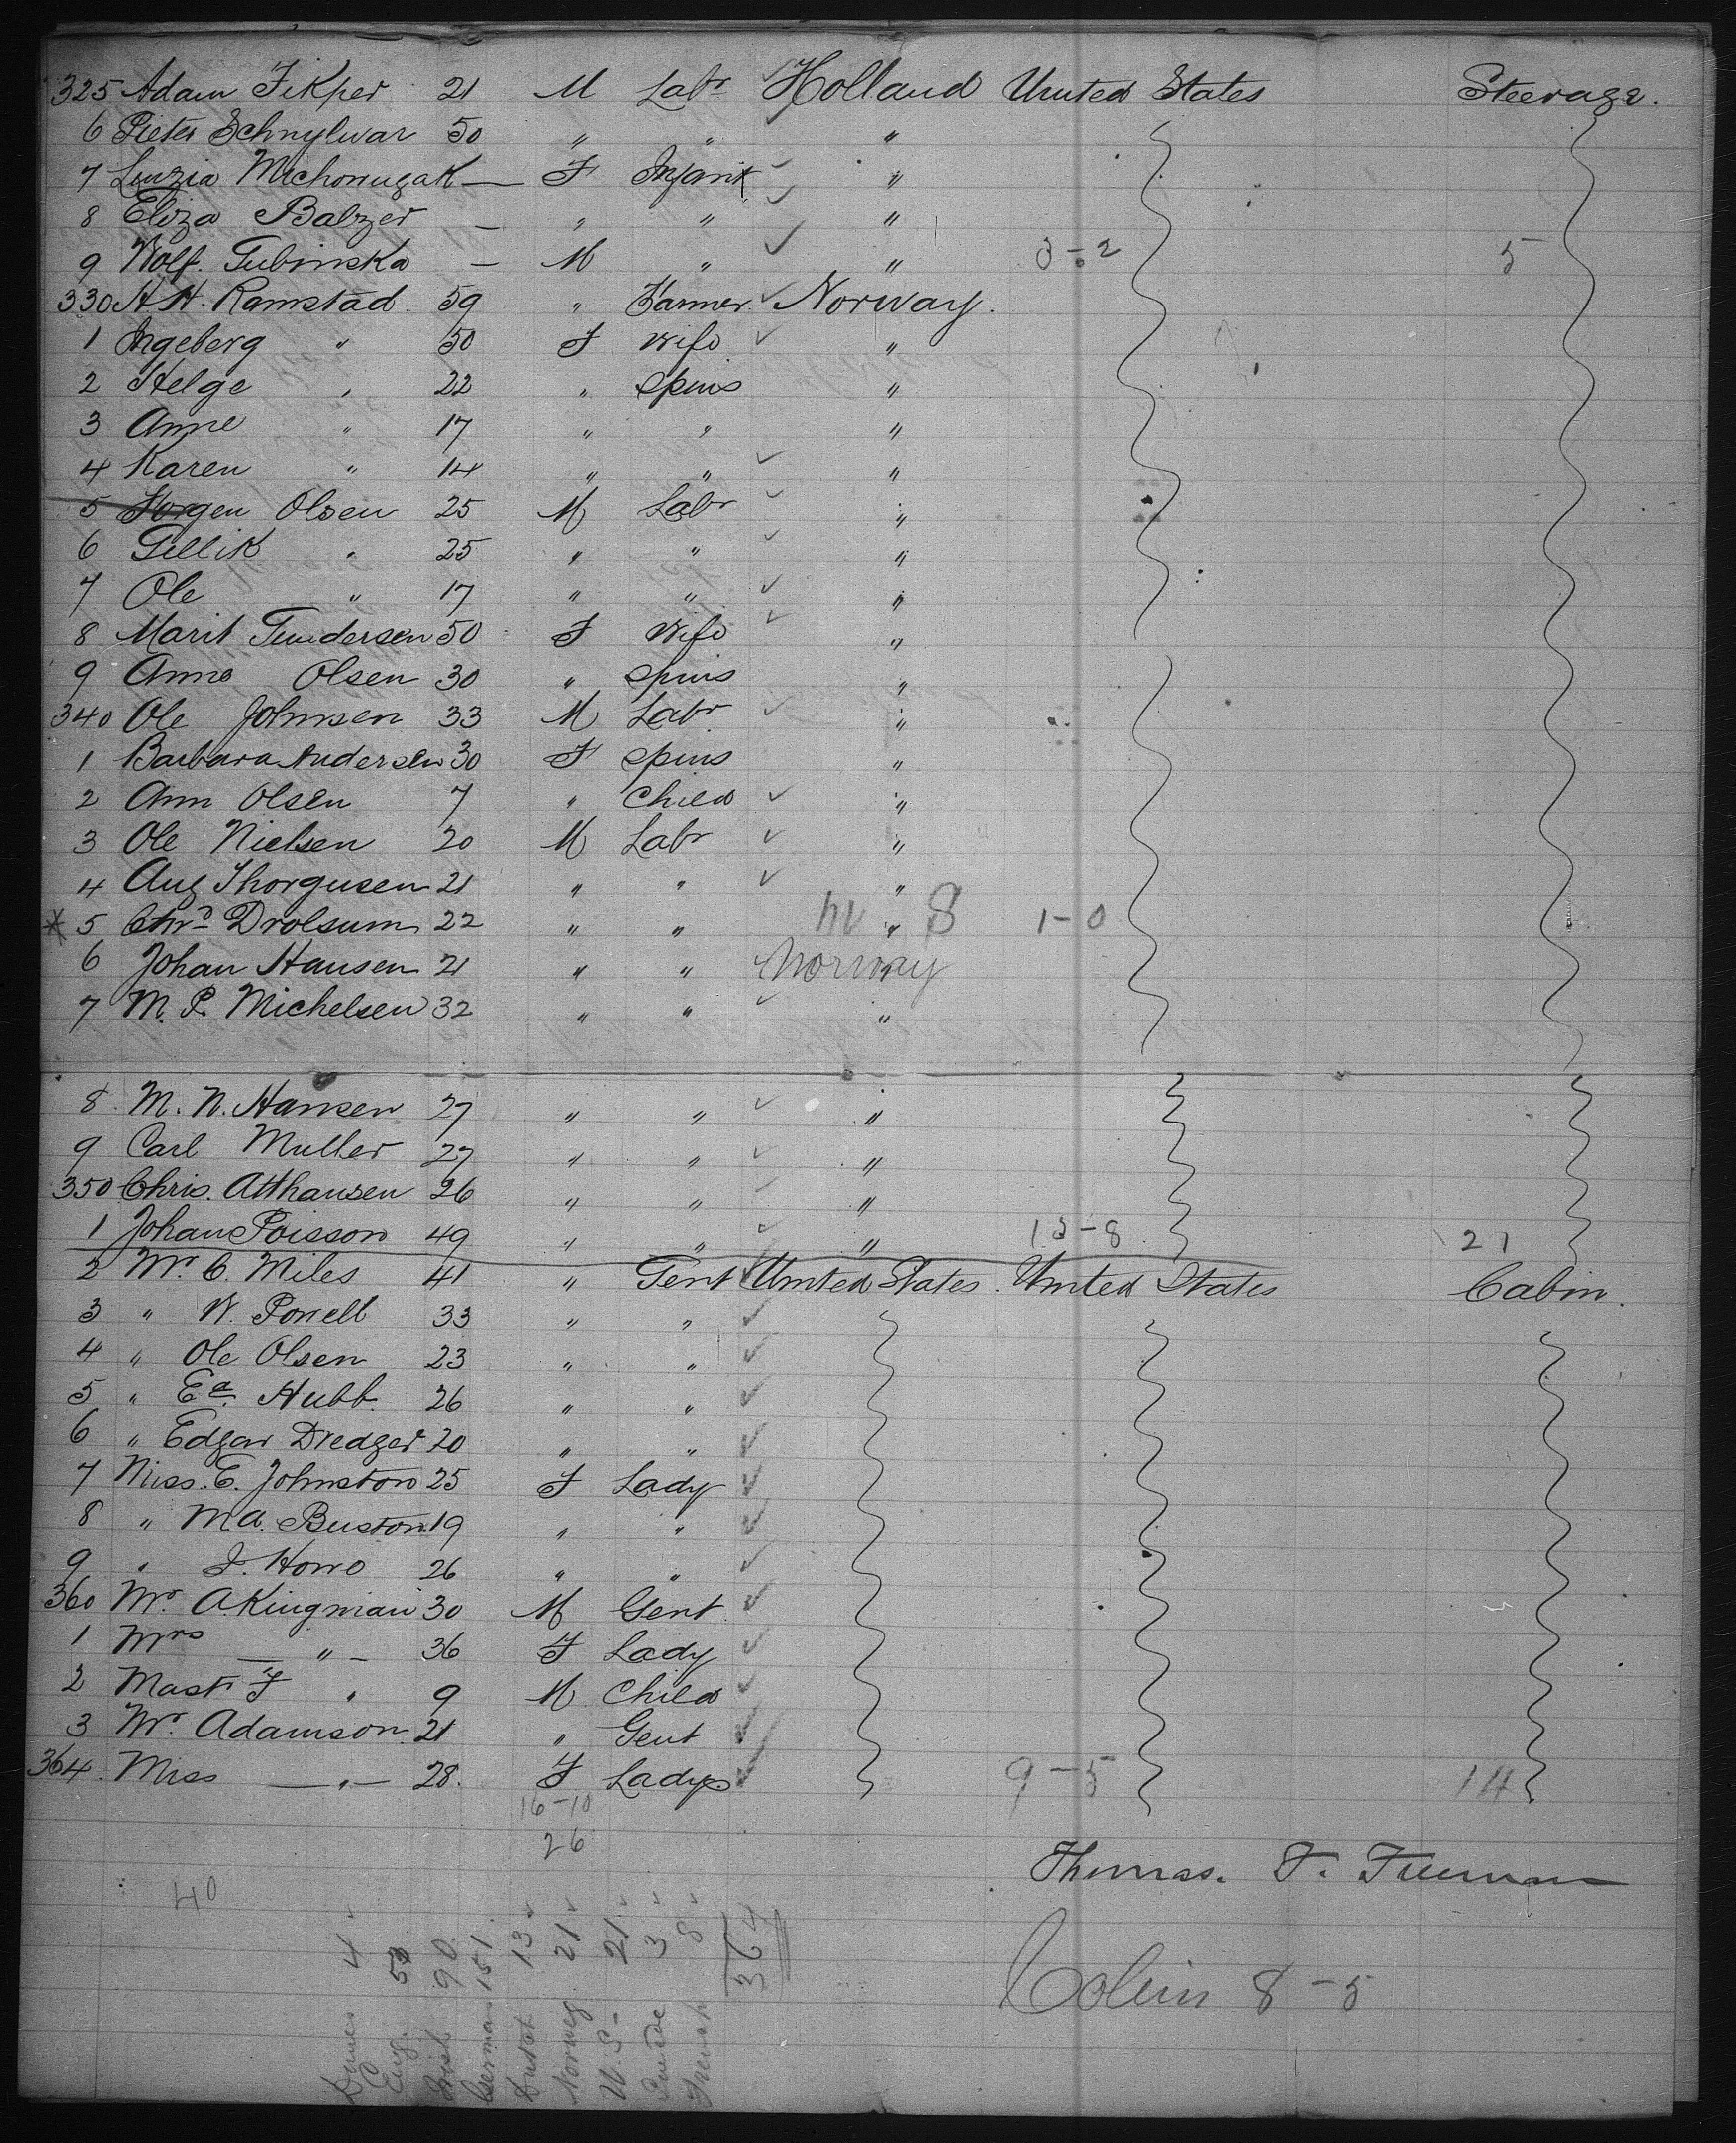 325 Adam Fikper 21 M Labr Holland United States Steerage.
6 Pieter Schnylwar 50 " " "
7 Luzia Michonugak — F Infant "
8 Eliza Balzer — " " "
9 Wolf. Tubinska — M " " 3-2 5
330 H.H. Ramstad. 59 " Farmer Norway.
1 Ingeberg " 50 F Wife "
2 Helge " 22 " Spins "
3 Anne " 17 " " "
4 Karen " 14 " " "
5 Horgen Olsen 25 M Labr "
6 Gellik " 25 " " "
7 Ole " 17 " " "
8 Marit Gundersen 50 F Wife "
9 Anna Olsen 30 " Spins "
340 Ole Johnsen 33 M Labr "
1 Barbara Andersen 30 F Spins "
2 Ann Olsen 7 " Child "
3 Ole Nielsen 20 M Labr "
4 Aug Thorgusen 21 " " "
* 5 Chrd Drolsum 22 " " " 8 1-0
6 Johan Hansen 21 " " Norway
7 M. P. Michelsen 32 " " "
8 M. N. Hansen 27 " " "
9 Carl Muller 27 " " "
350 Chris. Atthausen 26 " " "
1 Johan Poisson 49 " " " 13-8 21
2 Mr. C. Miles 41 " Gent United States. United States Cabin.
3 " W. Powell 33 " "
4 " Ole Olsen 23 " "
5 " Ed. Hubb. 26 " "
6 " Edgar Dredger 20 " "
7 Miss. E. Johnston 25 F Lady
8 " M A. Buston 19 " "
9 " J. Howe 26 " "
360 Mr. A. Kingman 30 M Gent
1 Mrs — " — 36 F Lady
2 Mast F " 9 M Child
3 Mr. Adamson. 21 " Gent
364. Miss — " — 28. F Lady 9-5 14
16-10
26
Thomas. F. Freeman
40
Cabin 8-5
Danes 4
Eng. 53
Irish 90
German 151
Dutch 13
Norweg 21
U.S- 21
Swede 3
French 8
364